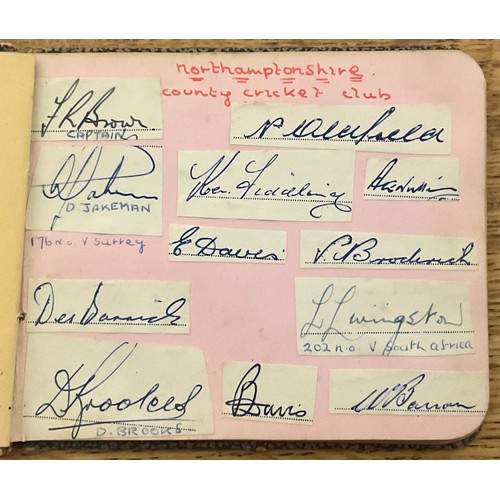 northamptonshire.
county cricket club
F R Brown
CAPTAIN
N Oldfield
D. JAKEMAN
176 n.o. v Surrey
Ken Fiddling
E Davis
P.C Broderick
Des Barrick
L Livingston
202 n.o. v South Africa
D Brookes
D. BROOKS
B Davis
W Barron